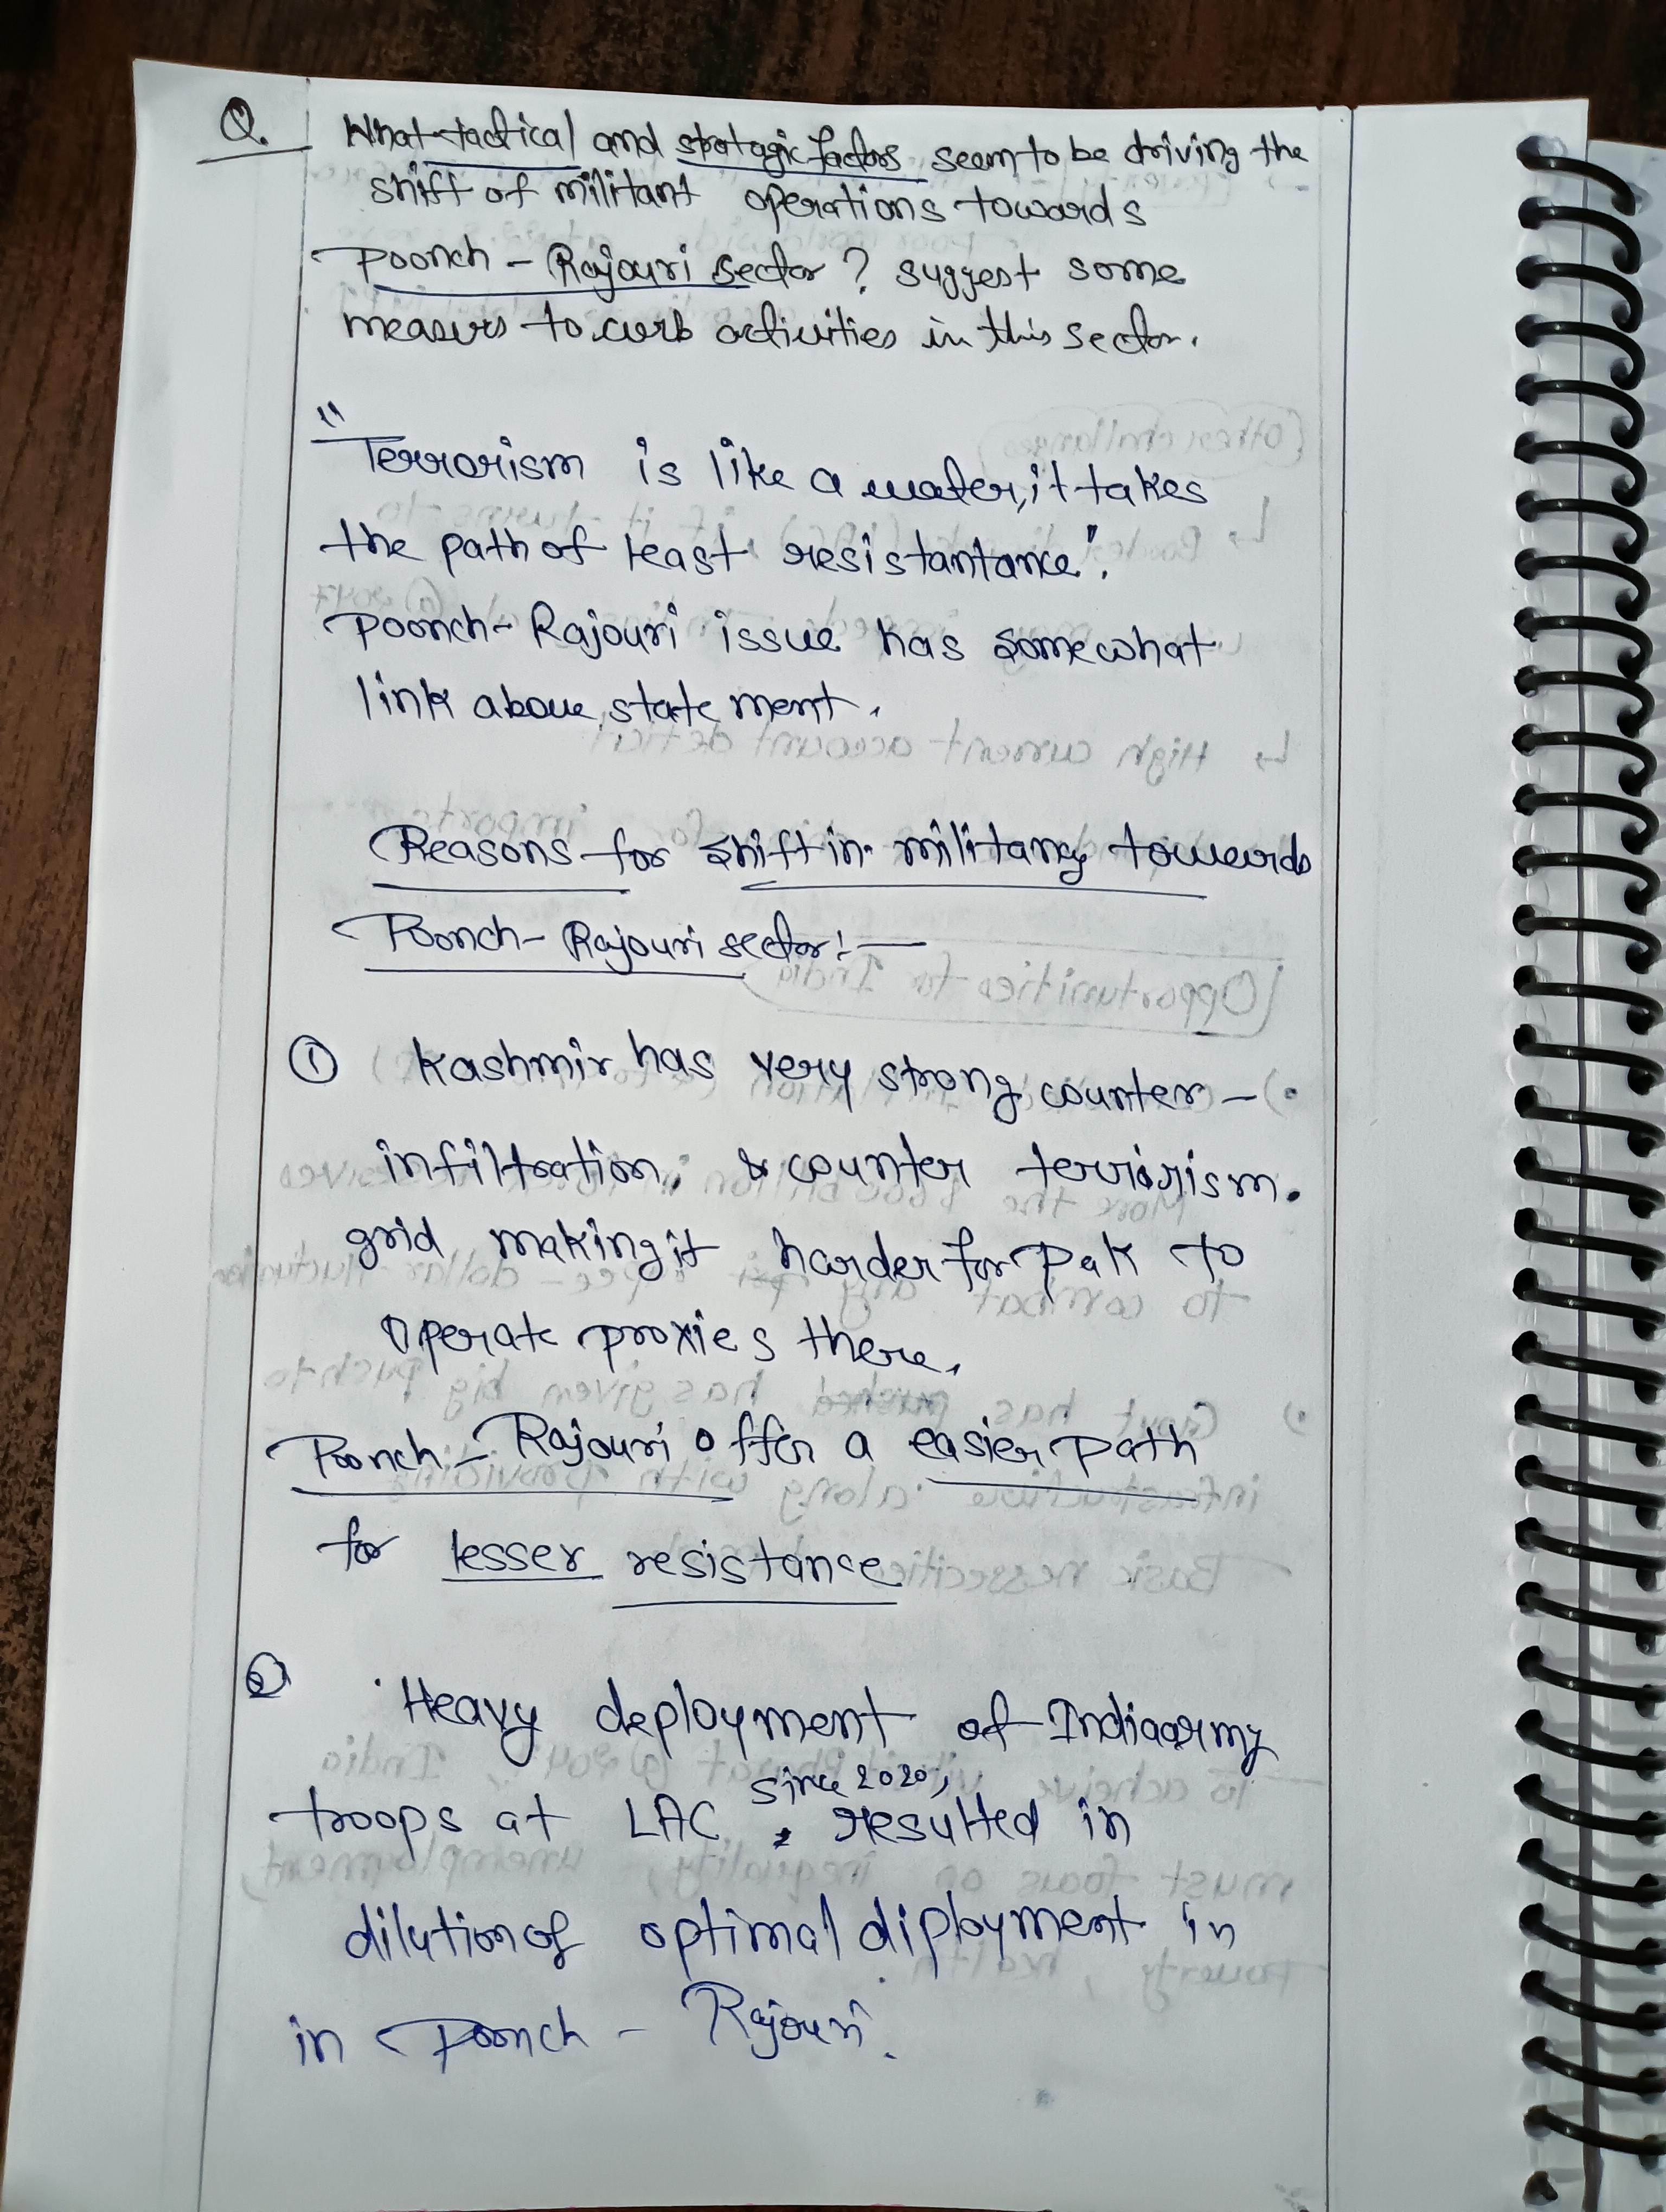 Q. What tactical and strategic factors seem to be driving the
shift of militant operations towards
Poonch - Rajouri sector? suggest some
measurs to curb activities in this sector.
"Terrorism is like a water, it takes
the path of least resistantance".
Poonch-Rajouri issue has somewhat
link above statement.
Reasons for shift in militancy towards
Poonch-Rajouri sector:-
① Kashmir has very strong counter-
infiltration, & counter terrorism.
grid making it harder for Pak to
operate proxies there.
Poonch-Rajouri offer a easier path
for lesser resistance
② Heavy deployment of India army
since 2020,
troops at LAC, resulted in
dilution of optimal diployment in
in Poonch - Rajouri.